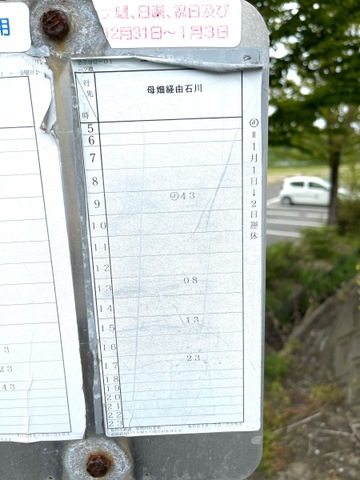 用
曜、日曜、祝日及び
12月31日～1月3日
行先
時
母畑経由石川
5
6
7
8
9 43
10
11
12
13 08
14
15 13
16
17 23
18
19
20
21
22
23
1月1日↓2日運休
3
23
43